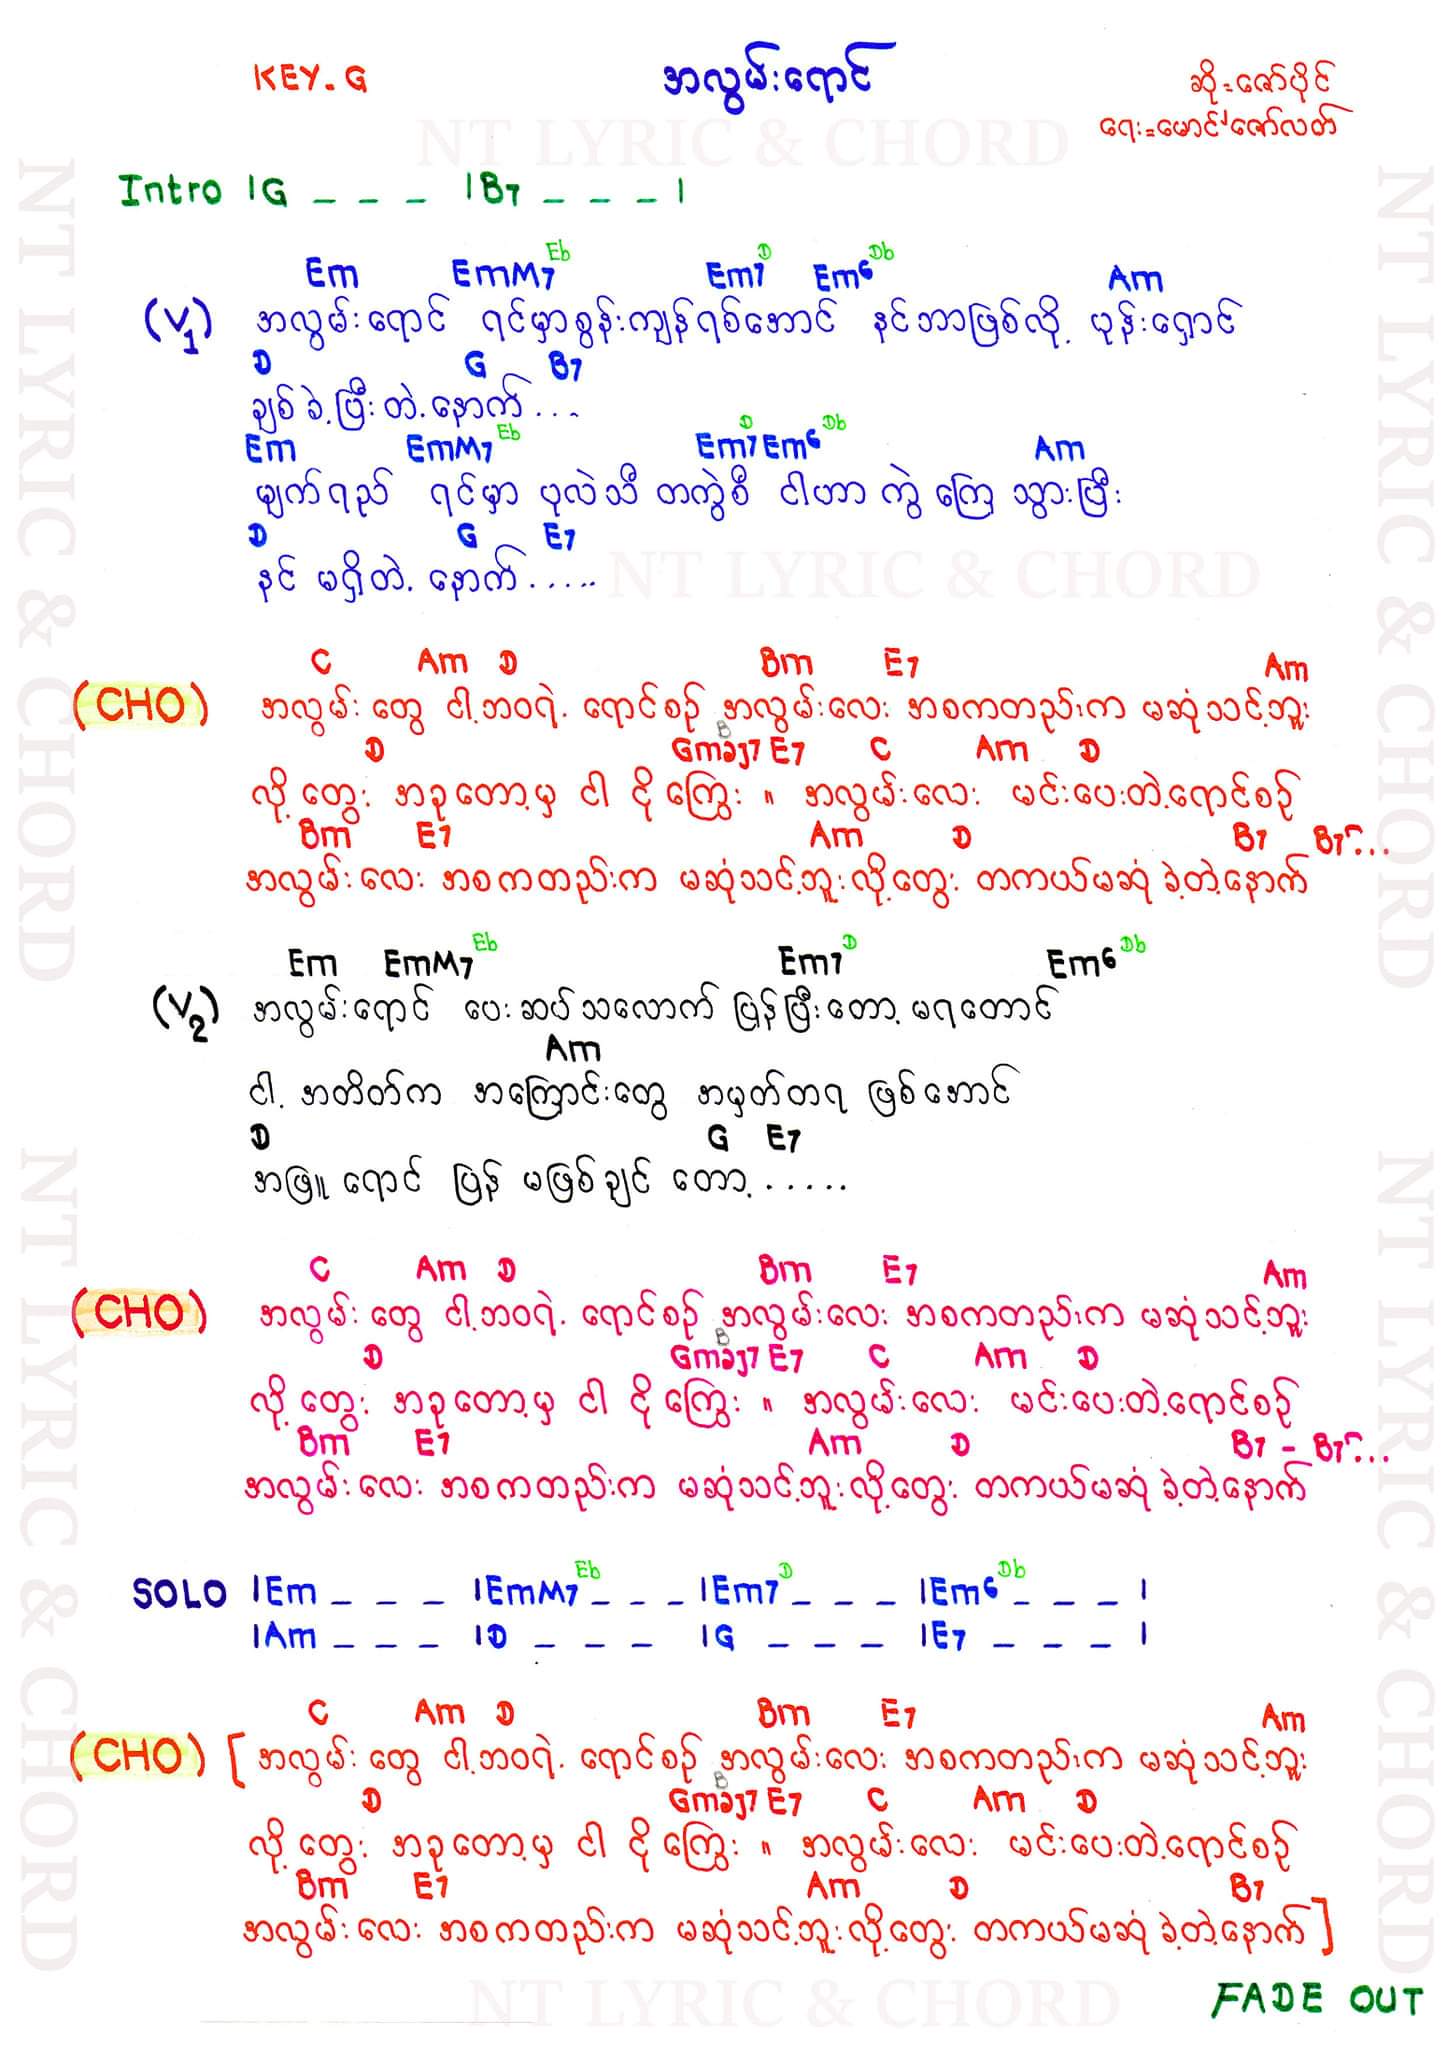 KEY.G
အလွမ်းရောင်
ဆို=ဇော်ပိုင်
ရေး=မောင်မောင်ဇော်လတ်
NT LYRIC & CHORD
Intro |G _ _ _ |B7 _ _ _ |
Em EmM7 Eb Em7 D Em6 Db Am
(V1) အလွမ်းရောင် ရင်မှာစွန်းကျန်ရစ်အောင် နင်ဘာဖြစ်လို့ ပုန်းရှောင်
D G B7
ချစ်ခဲ့ပြီးတဲ့နောက်...
Em EmM7 Eb Em7 D Em6 Db Am
မျက်ရည် ရင်မှာ ပုလဲသီ တကွဲစီ ငါဟာ ကွဲ ကြေ သွားပြီး
D G E7
နင် မရှိတဲ့ နောက်.....
NT LYRIC & CHORD
C Am D Bm E7 Am
(CHO) အလွမ်း တွေ ငါ့ဘဝရဲ့ ရောင်စဉ် အလွမ်းလေး အစကတည်းက မဆုံသင့်ဘူး
D Gmaj7 B E7 C Am D
လို့ တွေး အခုတော့မှ ငါ ငိုကြွေး ။ အလွမ်းလေး မင်းပေးတဲ့ရောင်စဉ်
Bm E7 Am D B7 B7...
အလွမ်းလေး အစကတည်းက မဆုံသင့်ဘူးလို့တွေး တကယ်မဆုံ ခဲ့တဲ့နောက်
Em EmM7 Eb Em7 D Em6 Db
(V2) အလွမ်းရောင် ပေးဆပ်သလောက် ပြန်ပြီးတော့ မရတောင်
Am
ငါ့ အတိတ်က အကြောင်းတွေ အမှတ်တရ ဖြစ်အောင်
D G E7
အဖြူ ရောင် ပြန် မဖြစ်ချင် တော့.....
C Am D Bm E7 Am
(CHO) အလွမ်း တွေ ငါ့ဘဝရဲ့ ရောင်စဉ် အလွမ်းလေး အစကတည်းက မဆုံသင့်ဘူး
D Gmaj7 B E7 C Am D
လို့ တွေး အခုတော့မှ ငါ ငိုကြွေး ။ အလွမ်းလေး မင်းပေးတဲ့ရောင်စဉ်
Bm E7 Am D B7 - B7...
အလွမ်းလေး အစကတည်းက မဆုံသင့်ဘူးလို့တွေး တကယ်မဆုံ ခဲ့တဲ့နောက်
SOLO |Em _ _ _ |EmM7 Eb _ _ _ |Em7 D _ _ _ |Em6 Db _ _ _ |
|Am _ _ _ |D _ _ _ |G _ _ _ |E7 _ _ _ |
C Am D Bm E7 Am
(CHO) [ အလွမ်း တွေ ငါ့ဘဝရဲ့ ရောင်စဉ် အလွမ်းလေး အစကတည်းက မဆုံသင့်ဘူး
D Gmaj7 B E7 C Am D
လို့ တွေး အခုတော့မှ ငါ ငိုကြွေး ။ အလွမ်းလေး မင်းပေးတဲ့ရောင်စဉ်
Bm E7 Am D B7
အလွမ်းလေး အစကတည်းက မဆုံသင့်ဘူးလို့တွေး တကယ်မဆုံ ခဲ့တဲ့နောက် ]
FADE OUT
NT LYRIC & CHORD
NT LYRIC & CHORD
NT LYRIC & CHORD
NT LYRIC & CHORD
NT LYRIC & CHORD